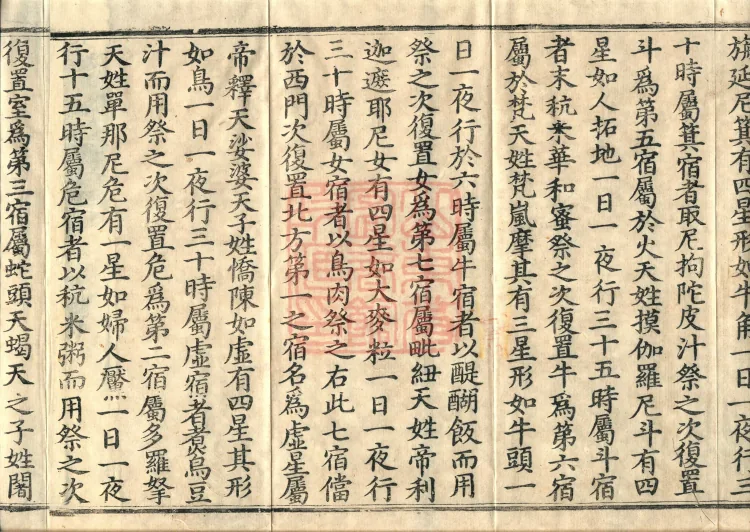 旃延尼箕有四星形如牛解一日一夜行三
十時屬箕宿者取尼拘陀皮汁祭之次復置
斗爲第五宿屬於火天姓摸伽羅尼斗有四
星如人拓地一日一夜行三十五時屬斗宿
者末秔米華和蜜祭之次復置牛爲第六宿
屬於梵天姓梵嵐摩其有三星形如牛頭一
日一夜行於六時屬牛宿者以醍醐飯而用
祭之次復置女爲第七宿屬毗紐天姓帝利
迦遮耶尼女有四星如大麥粒一日一夜行
三十時屬女宿者以鳥肉祭之右此七宿儅
於西門次復置北方第一之宿名爲虛星屬
帝釋天娑婆天子姓憍陳如虛有四星其形
如鳥一日一夜行三十時屬虛宿者煑烏豆
汁而用祭之次復置危爲第二宿屬多羅拏
天姓單那尼危有一星如婦人黶一日一夜
行十五時屬危宿者以秔米粥而用祭之次
復置室爲第三宿屬蛇頭天蝎天之子姓闍